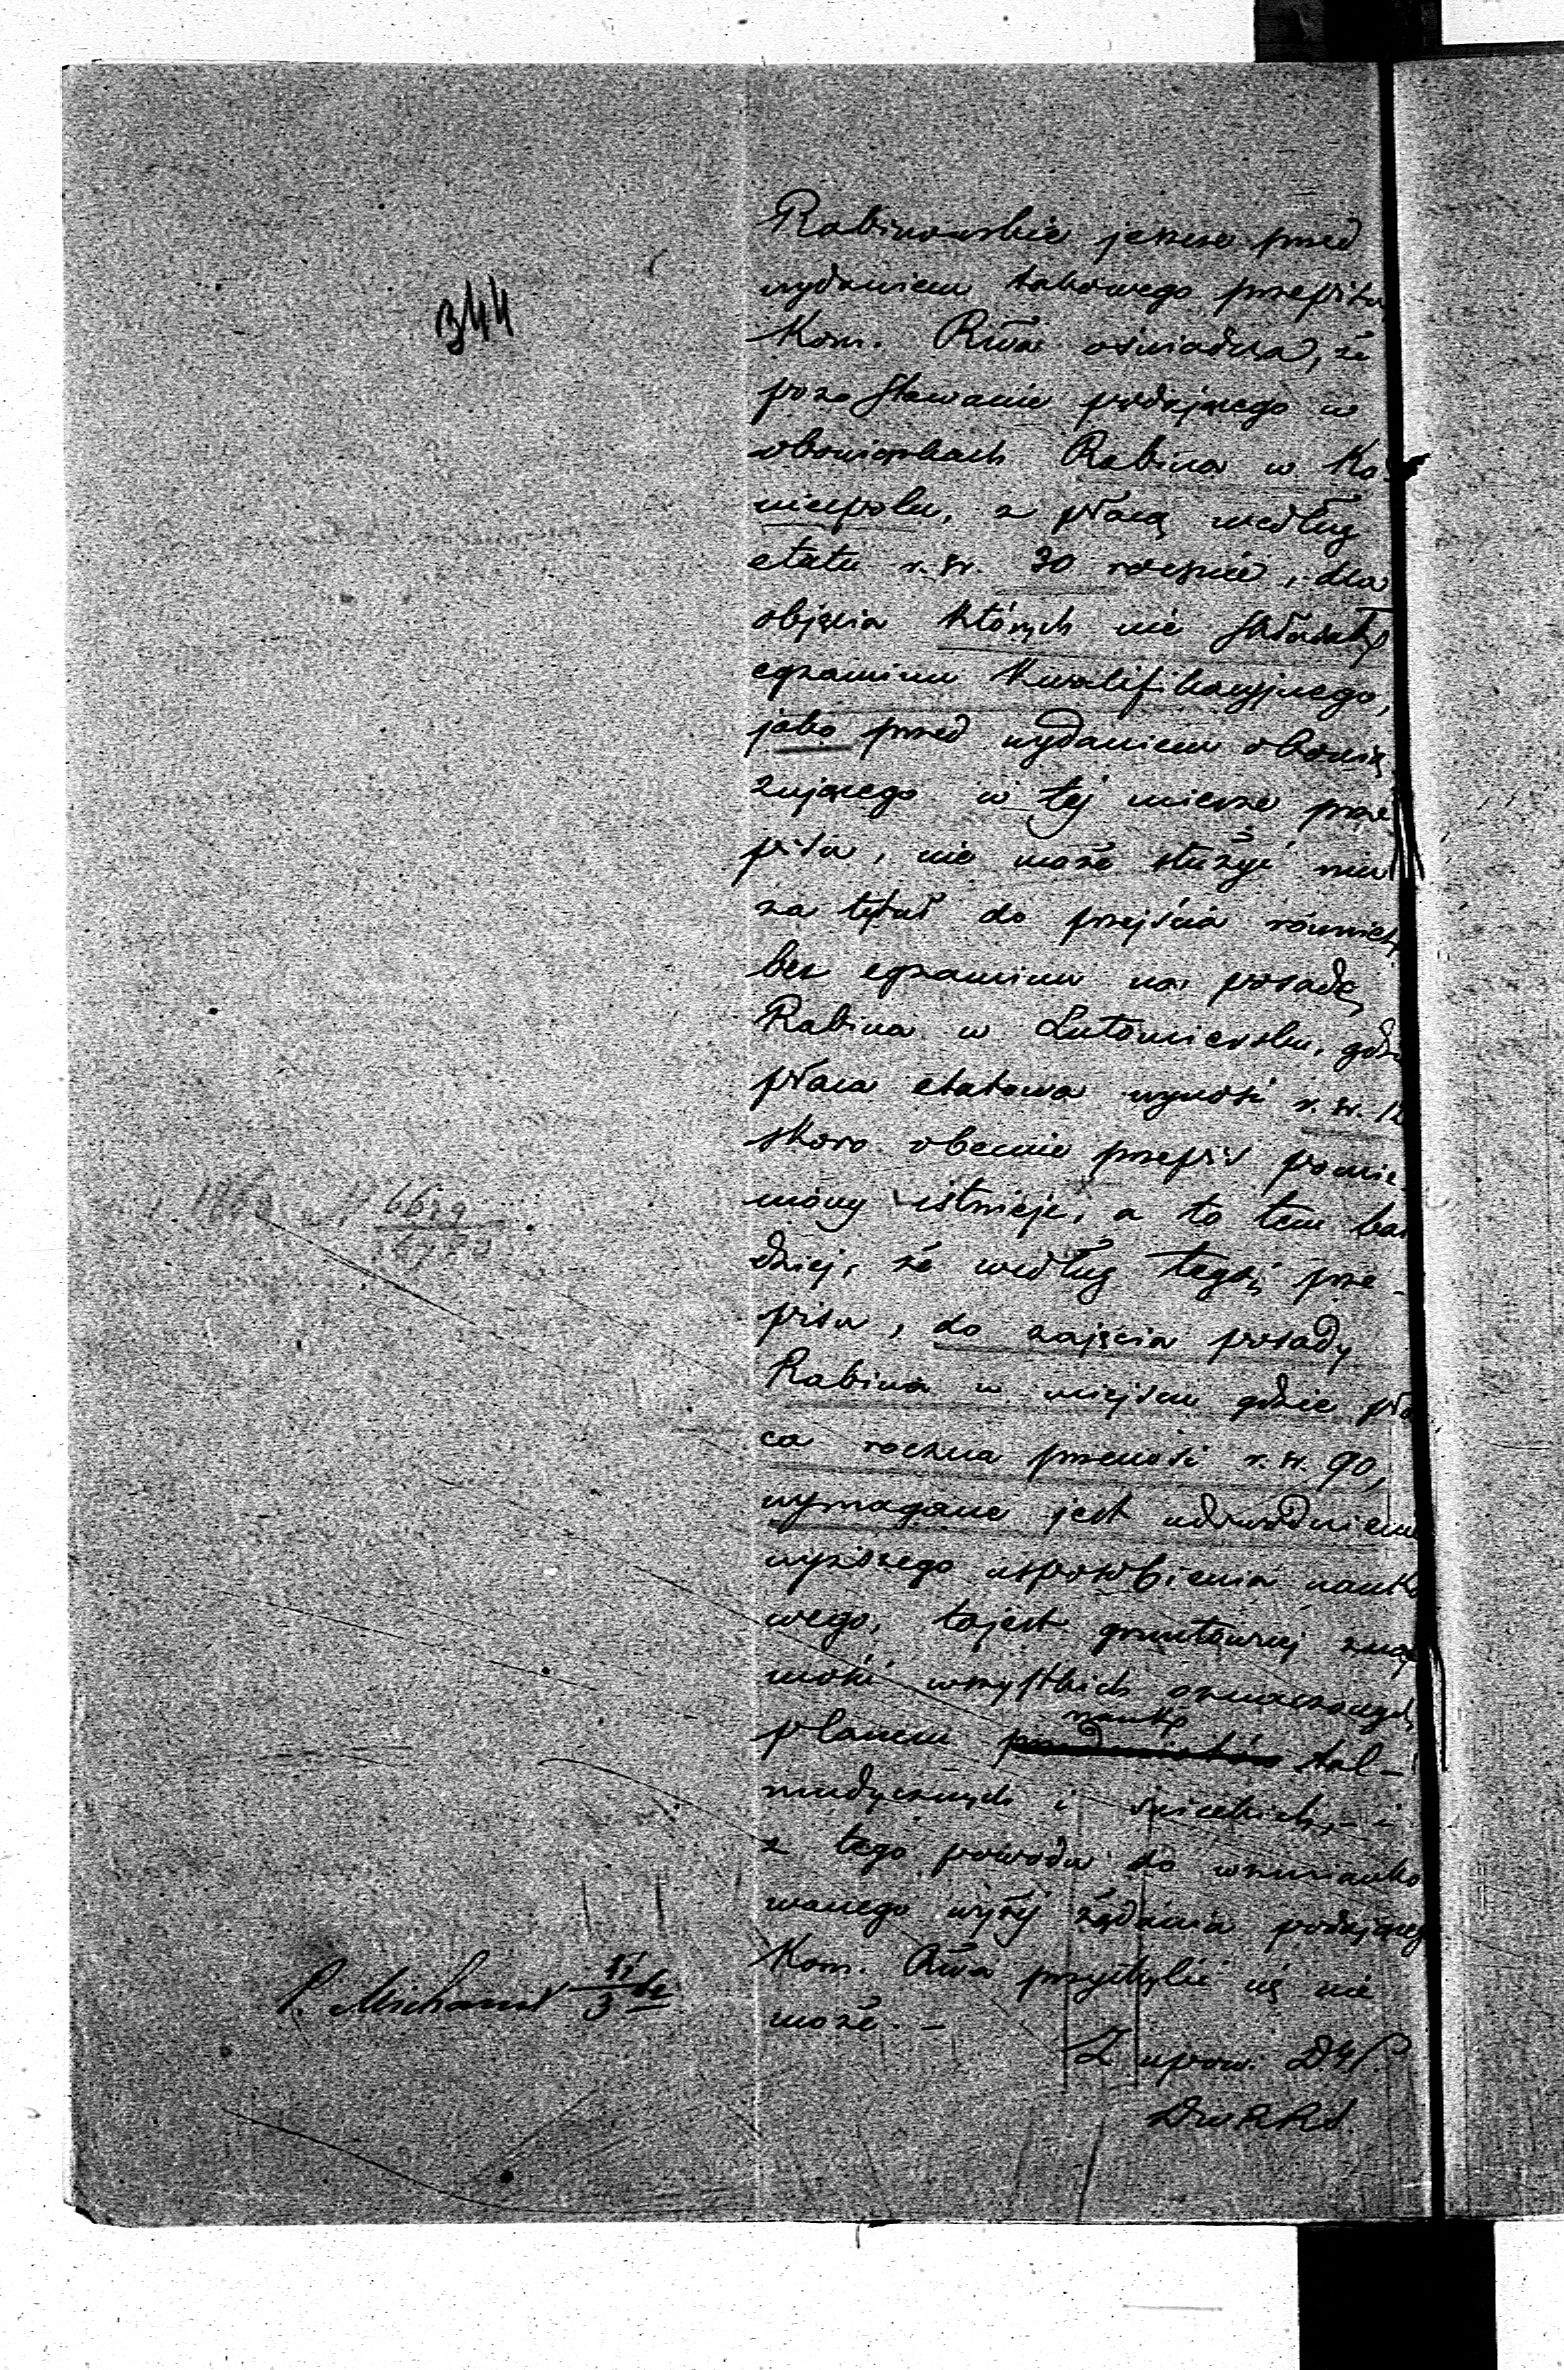 344
Rabinowskie jeszcze przed
wydaniem takowego przepisu
Kom. Rwa oświadcza, że
pozostawanie podającego w
obowiązkach Rabina w Ko-
niecpolu, z płacą według
etatu r. sr. 30 rocznie, dla
objęcia których nie składał
egzaminu kwalifikacyjnego,
jako przed wydaniem obowią
zującego w tej mierze prze
pisu, nie może służyć mu
za tytuł do przejścia również
bez egzaminu na posadę
Rabina w Lutomiersku, gdzie
płaca etatowa wynosi r. sr.
skoro obecnie przepis pomie
niony istnieje, a to tem bar
dziej, że według tegoż prze-
pisu, do zajęcia posady
Rabina w miejscu gdzie pła
ca roczna przenosi r. sr. 90,
wymagane jest udowodnienie
wyższego usposobienia nauko
wego, tojest gruntownej znajo
mości wszystkich oznaczonych
planem nauk tal-
mudycznych i świeckich, - i
z tego powodu do wzmianko
wanego wyżej żądania podającego
Kom. Rwa przychylić się nie
może. -
Z upow.